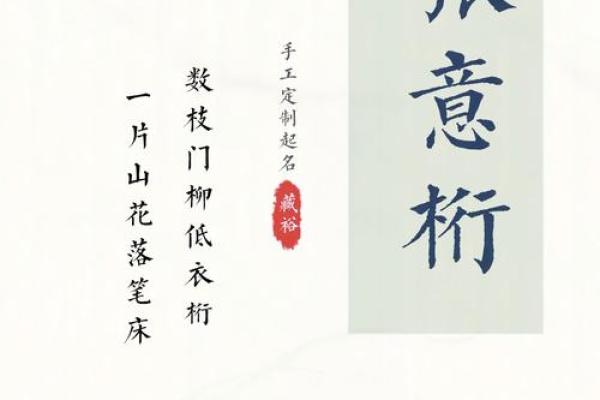 意桁
手工定制起名
藏裕
数枝门柳低衣桁
一片山花落笔床